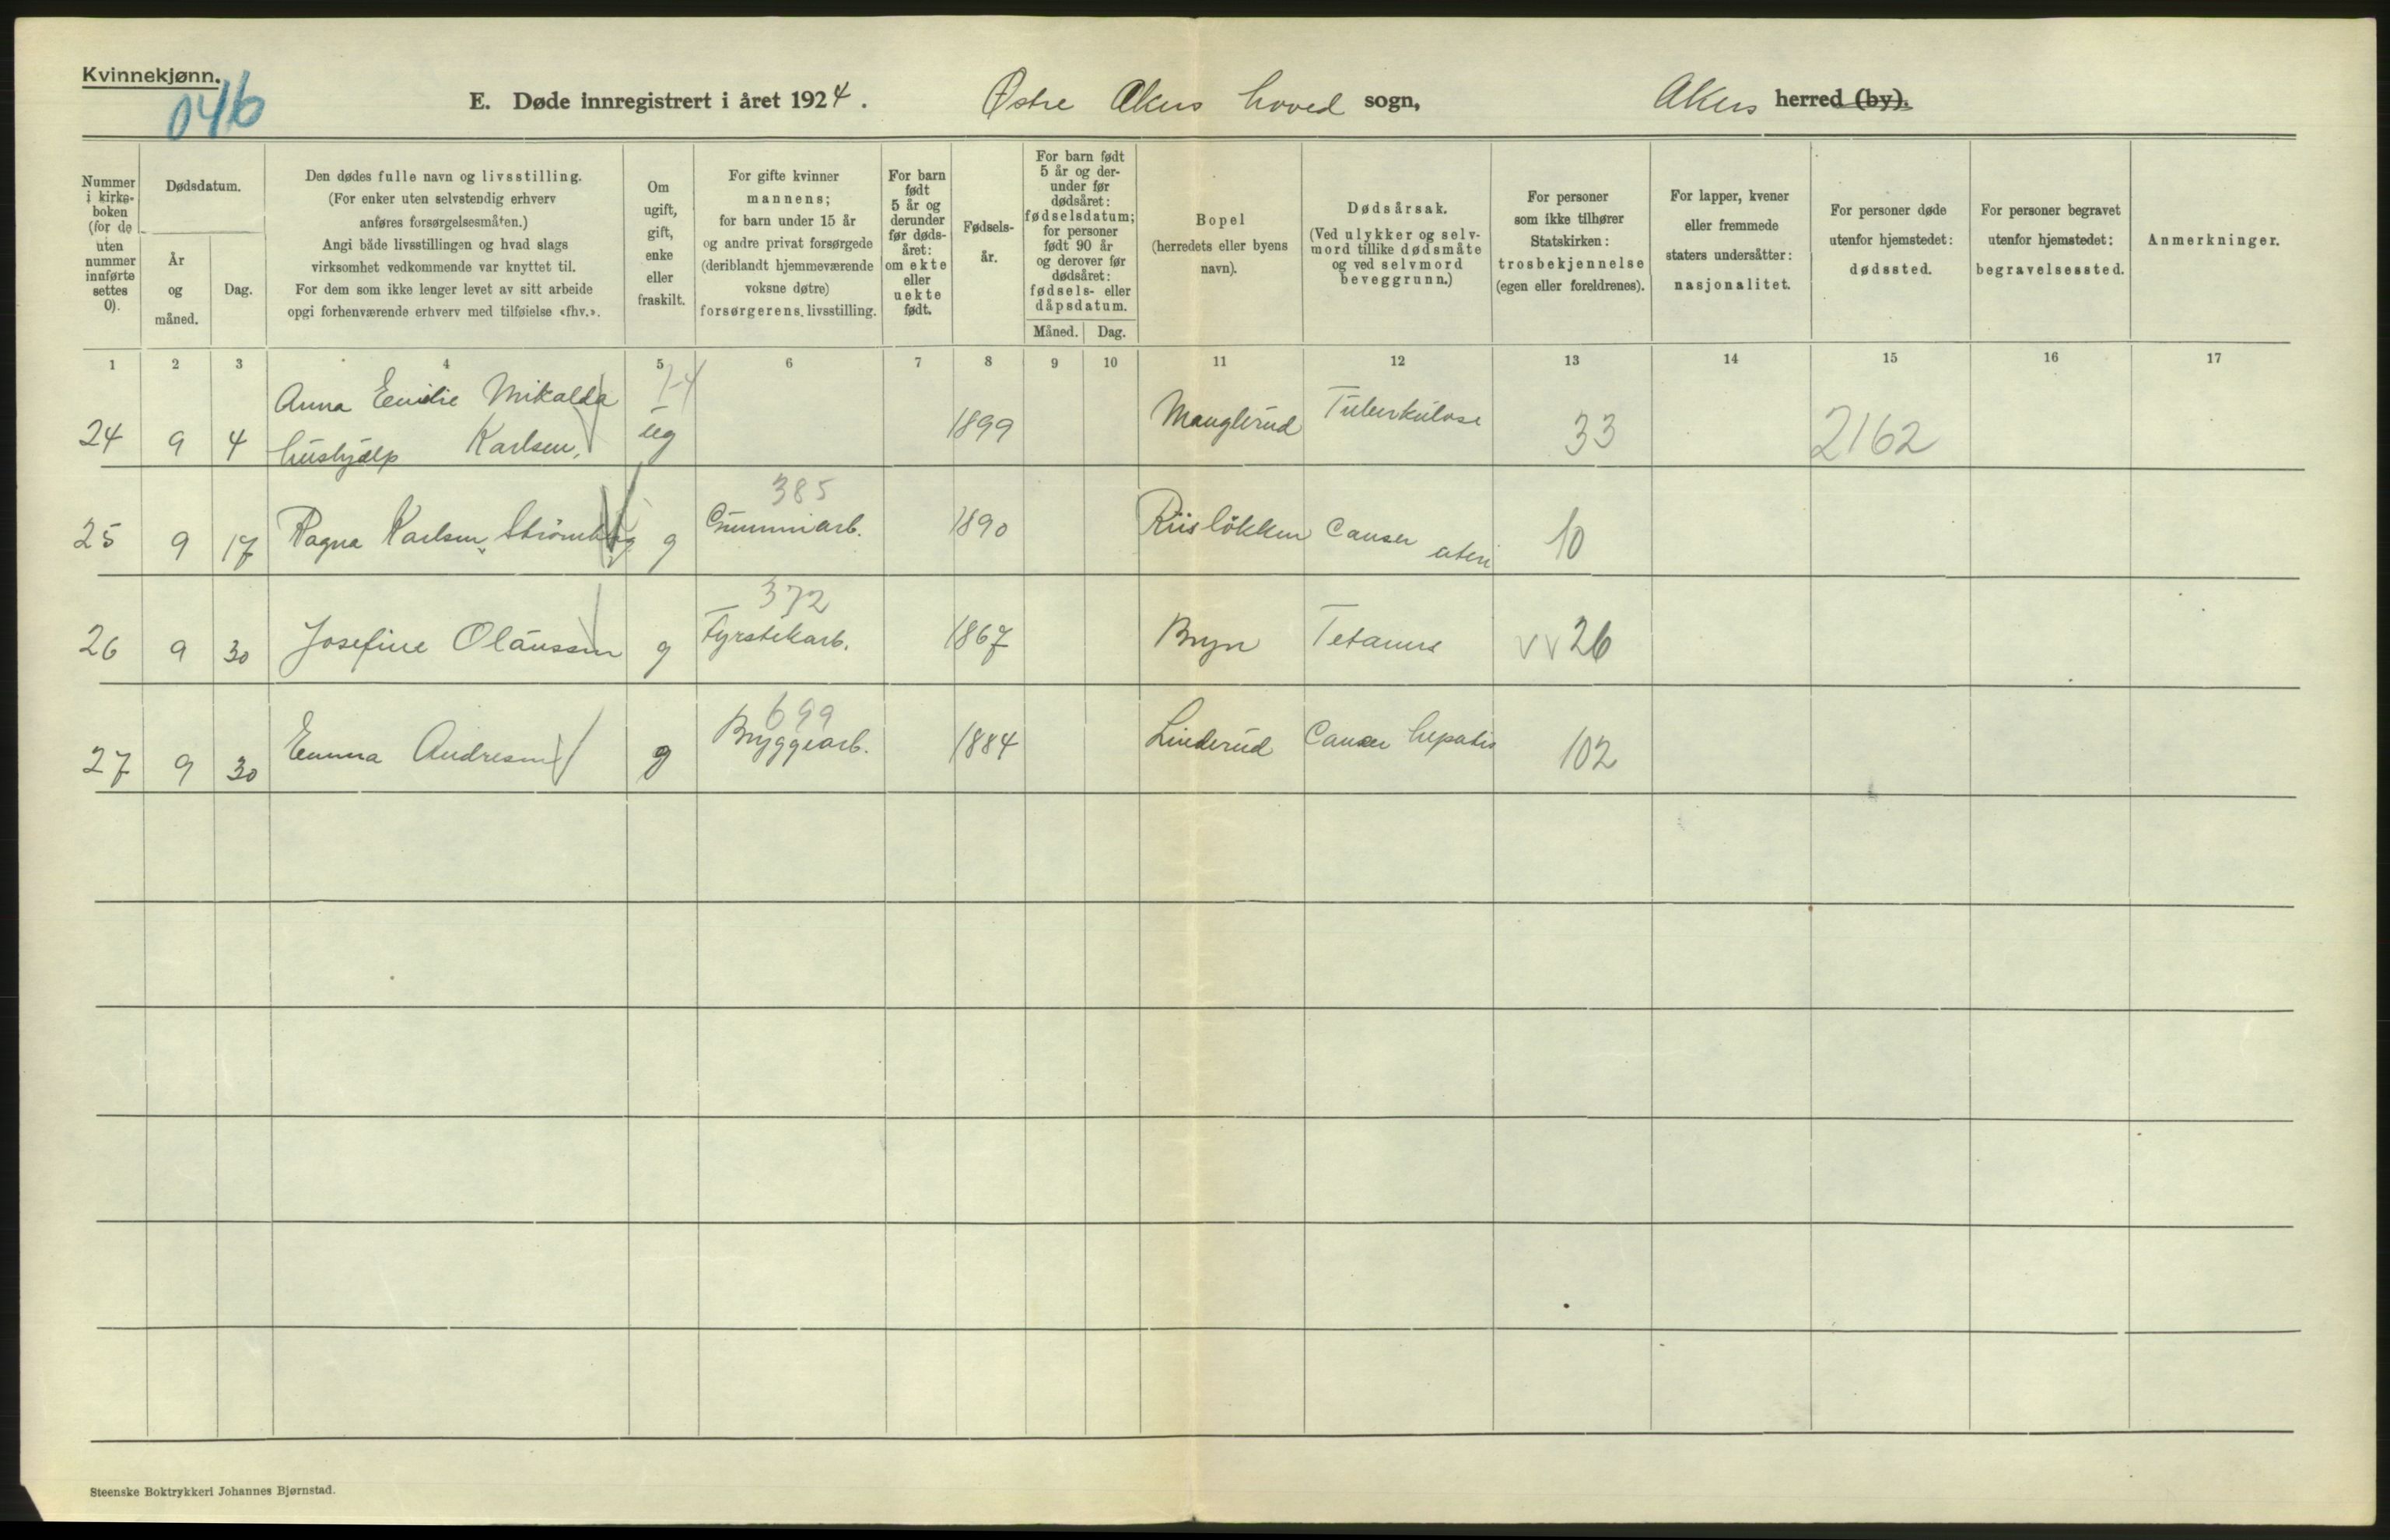 Kvinnekjønn.
046
E. Døde innregistrert i året 1924. Østre Akers hoved sogn, Akers herred (by).
Nummer i kirke-boken (for de uten nummer innførte settes 0).
Dødsdatum.
År og måned.
Dag.
Den dødes fulle navn og livsstilling.
(For enker uten selvstendig erhverv
anføres forsørgelsesmåten.)
Angi både livsstillingen og hvad slags
virksomhet vedkommende var knyttet til.
For dem som ikke lenger levet av sitt arbeide
opgi forhenværende erhverv med tilføielse «fhv.».
Om ugift, gift, enke eller fraskilt.
For gifte kvinner
mannens;
for barn under 15 år
og andre privat forsørgede
(deriblandt hjemmeværende
voksne døtre)
forsørgerens livsstilling.
For barn født 5 år og derunder før døds-året: om ekte eller uekte født.
Fødsels-år.
For barn født 5 år og der-under før dødsåret: fødselsdatum; for personer født 90 år og derover før dødsåret: fødsels- eller dåpsdatum.
Måned.
Dag.
Bopel
(herredets eller byens
navn).
Dødsårsak.
(Ved ulykker og selv-
mord tillike dødsmåte
og ved selvmord
beveggrunn.)
For personer
som ikke tilhører
Statskirken:
trosbekjennelse
(egen eller foreldrenes).
For lapper, kvener
eller fremmede
staters undersåtter:
nasjonalitet.
For personer døde
utenfor hjemstedet:
dødssted.
For personer begravet
utenfor hjemstedet:
begravelsessted.
Anmerkninger.
1 2 3 4 5 6 7 8 9 10 11 12 13 14 15 16 17
Anna Emilie Mikalda
24 9 4 hushjælp Karlsen, ug 1899 Manglerud Tuberkulose 33 2162
385
25 9 17 Ragna Karlsen Strømberg g Gummiarb. 1890 Riisløkken Canser uteri 10
372
26 9 30 Josefine Olaussen g Fyrstikarb. 1867 Bryn Tetanus vv 26
699
27 9 30 Emma Andresen g Bryggearb. 1884 Linderud Canser hepatis 102
Steenske Boktrykkeri Johannes Bjørnstad.